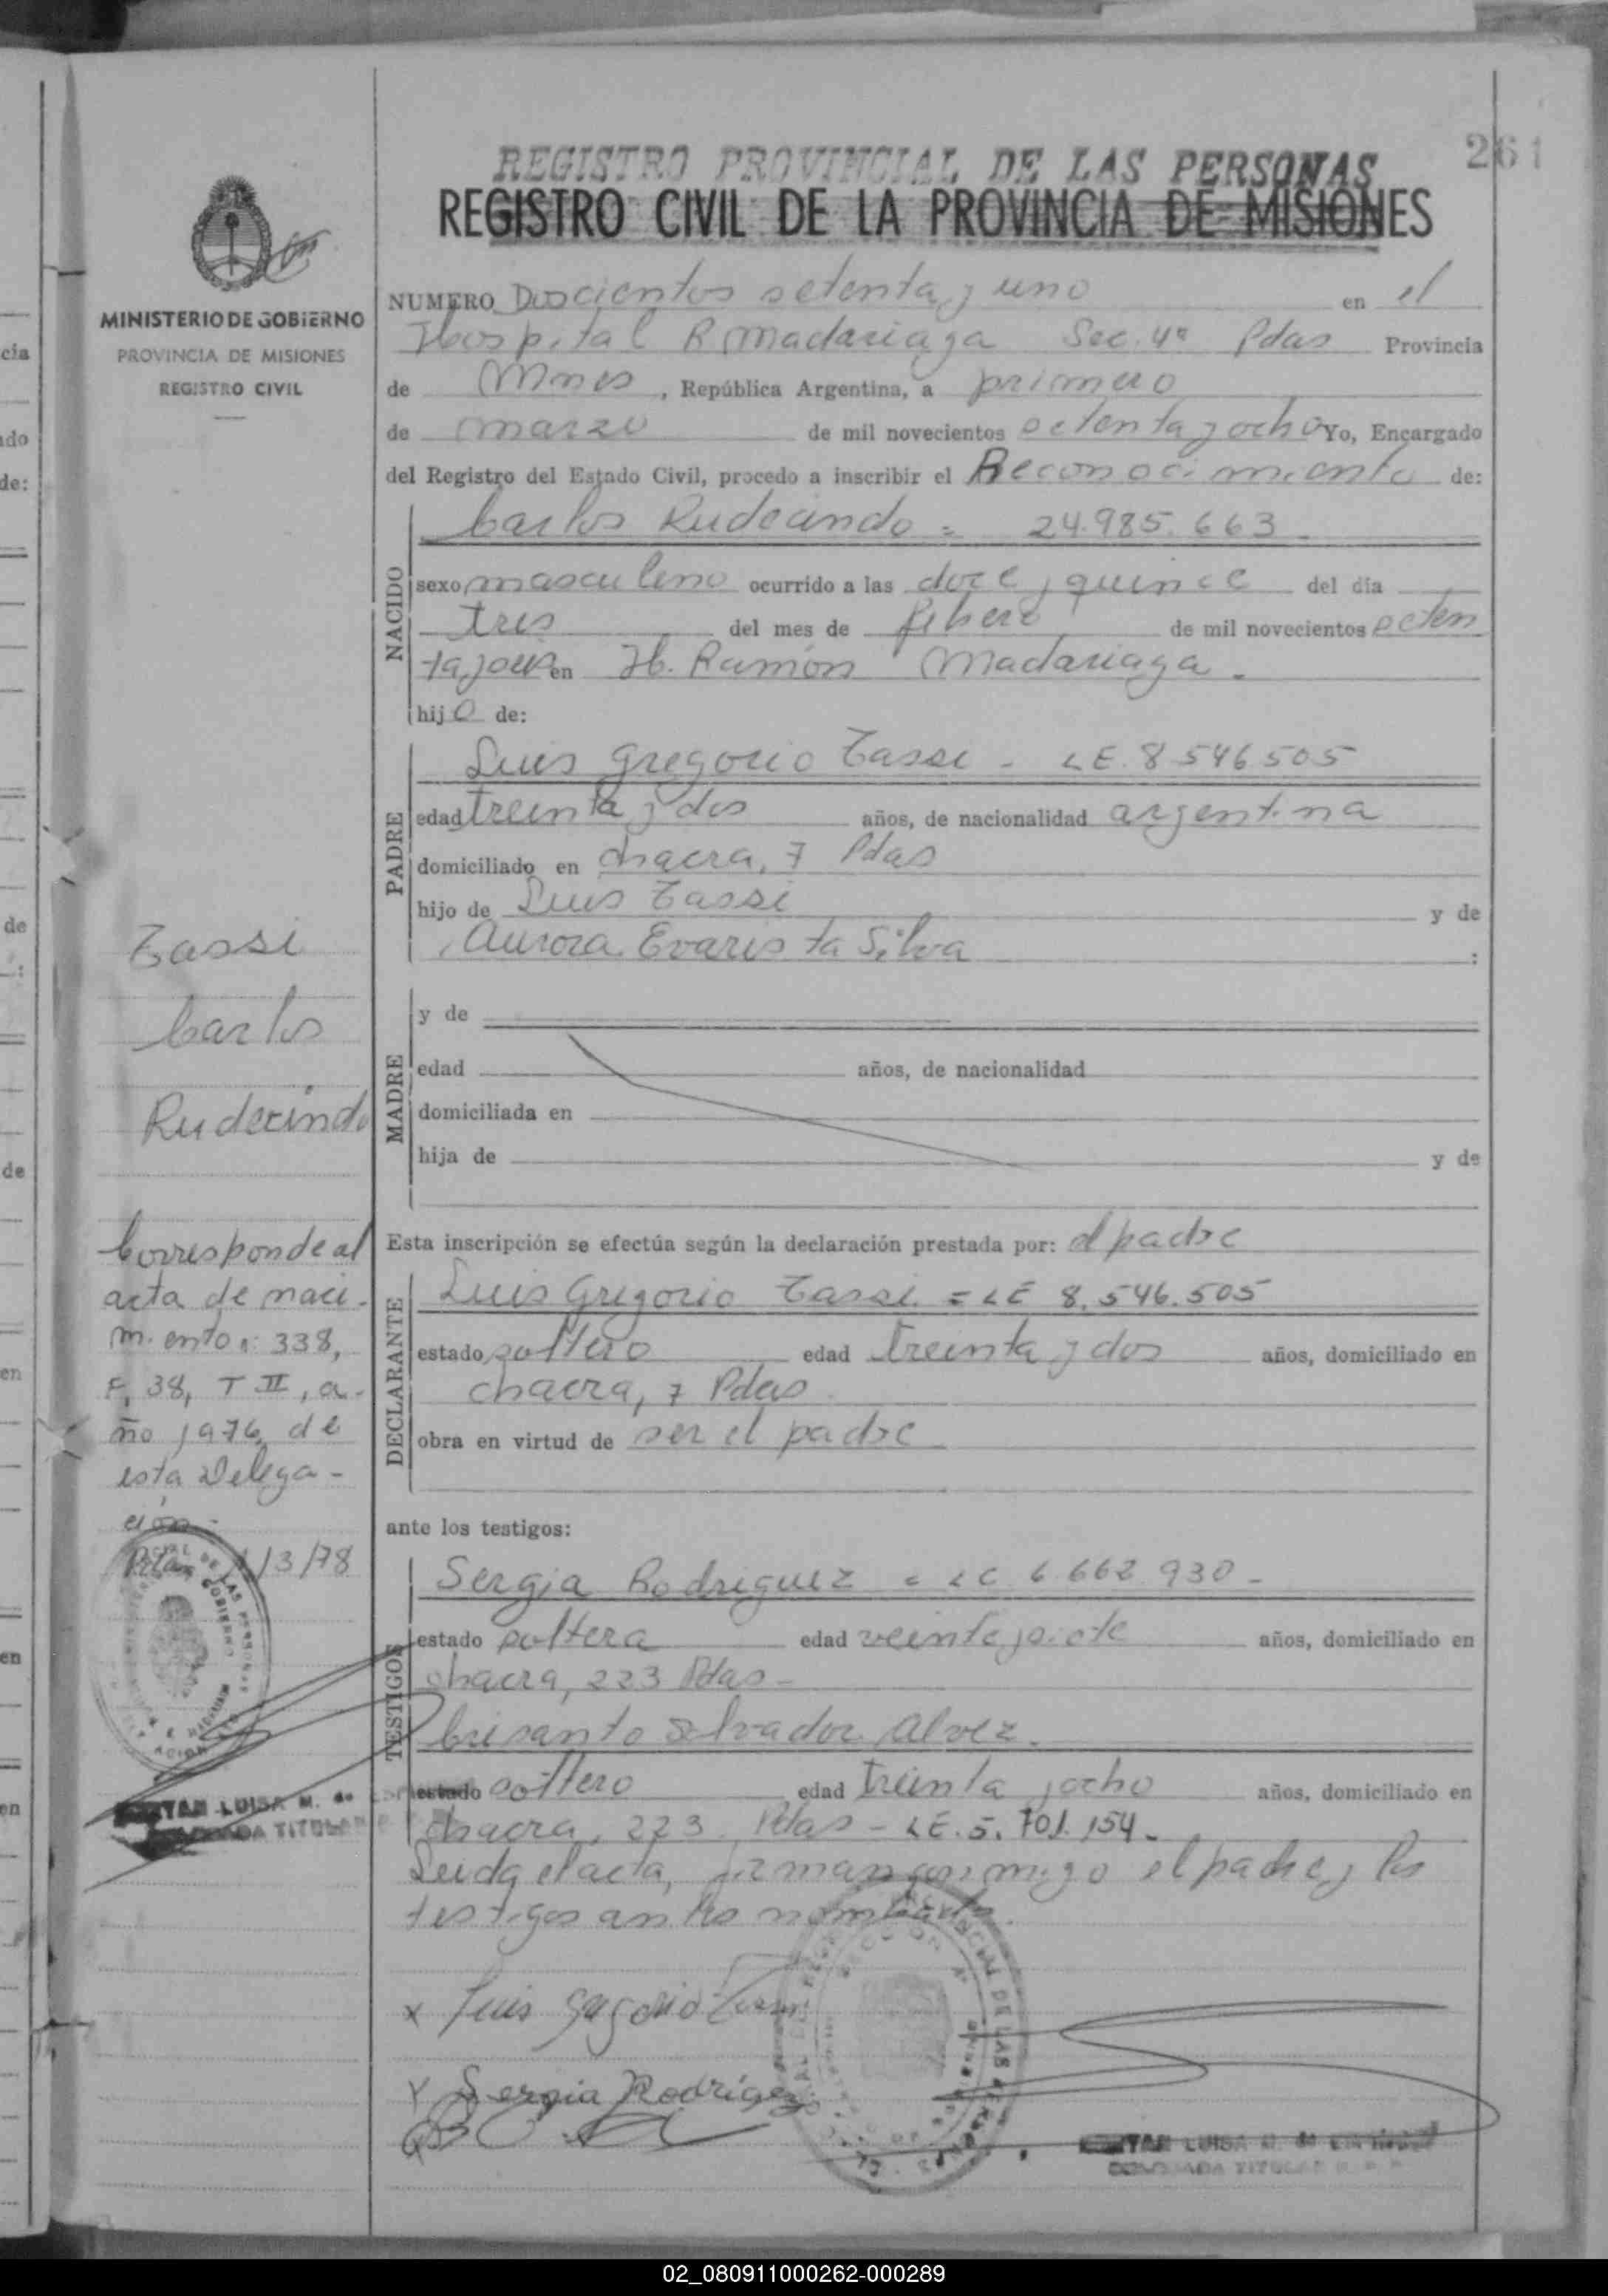 261
REGISTRO PROVINCIAL DE LAS PERSONAS
REGISTRO CIVIL DE LA PROVINCIA DE MISIONES
MINISTERIO DE GOBIERNO
PROVINCIA DE MISIONES
REGISTRO CIVIL
NUMERO Doscientos setenta y uno en el
Hospital R Madariaga Sec. 4ª Pdas Provincia
de Mnes, República Argentina, a primero
de marzo de mil novecientos setenta y ocho Yo, Encargado
del Registro del Estado Civil, procedo a inscribir el Reconocimiento de:
NACIDO
Carlos Rudecindo = 24.985.663
sexo masculino ocurrido a las doce y quince del día
tres del mes de febrero de mil novecientos seten
ta y seis en H. Ramón Madariaga.
hijo de:
PADRE
Luis Gregorio Tassi - LE. 8546505
edad treinta y dos años, de nacionalidad argentina
domiciliado en chacra, 7 Pdas
hijo de Luis Tassi y de
Aurora Evarista Silva :
MADRE
y de
edad años, de nacionalidad
domiciliada en
hija de y de
Esta inscripción se efectúa según la declaración prestada por: el padre
DECLARANTE
Luis Gregorio Tassi = LE 8.546.505
estado soltero edad treinta y dos años, domiciliado en
chacra, 7 Pdas
obra en virtud de ser el padre
ante los testigos:
TESTIGOS
Sergia Rodriguez = LC 6662930-
estado soltera edad veinte y siete años, domiciliado en
chacra, 223 Pdas-
Crisanto Salvador Alvez.
estado soltero edad treinta y ocho años, domiciliado en
chacra, 223 Pdas - LE. 5.701.154.
Leida el acta, firman conmigo el padre y los
testigos antes nombrados.
x Luis Gregorio Tassi
x Sergia Rodrigez
Tassi
Carlos
Rudecindo
Corresponde al
acta de naci-
miento n: 338,
F, 38, T II, a-
ño 1976, de
esta Delega-
ción-
Pdas 1/3/78
LUISA M. de
TITULAR
LUISA M. de
TITULAR
02_080911000262-000289